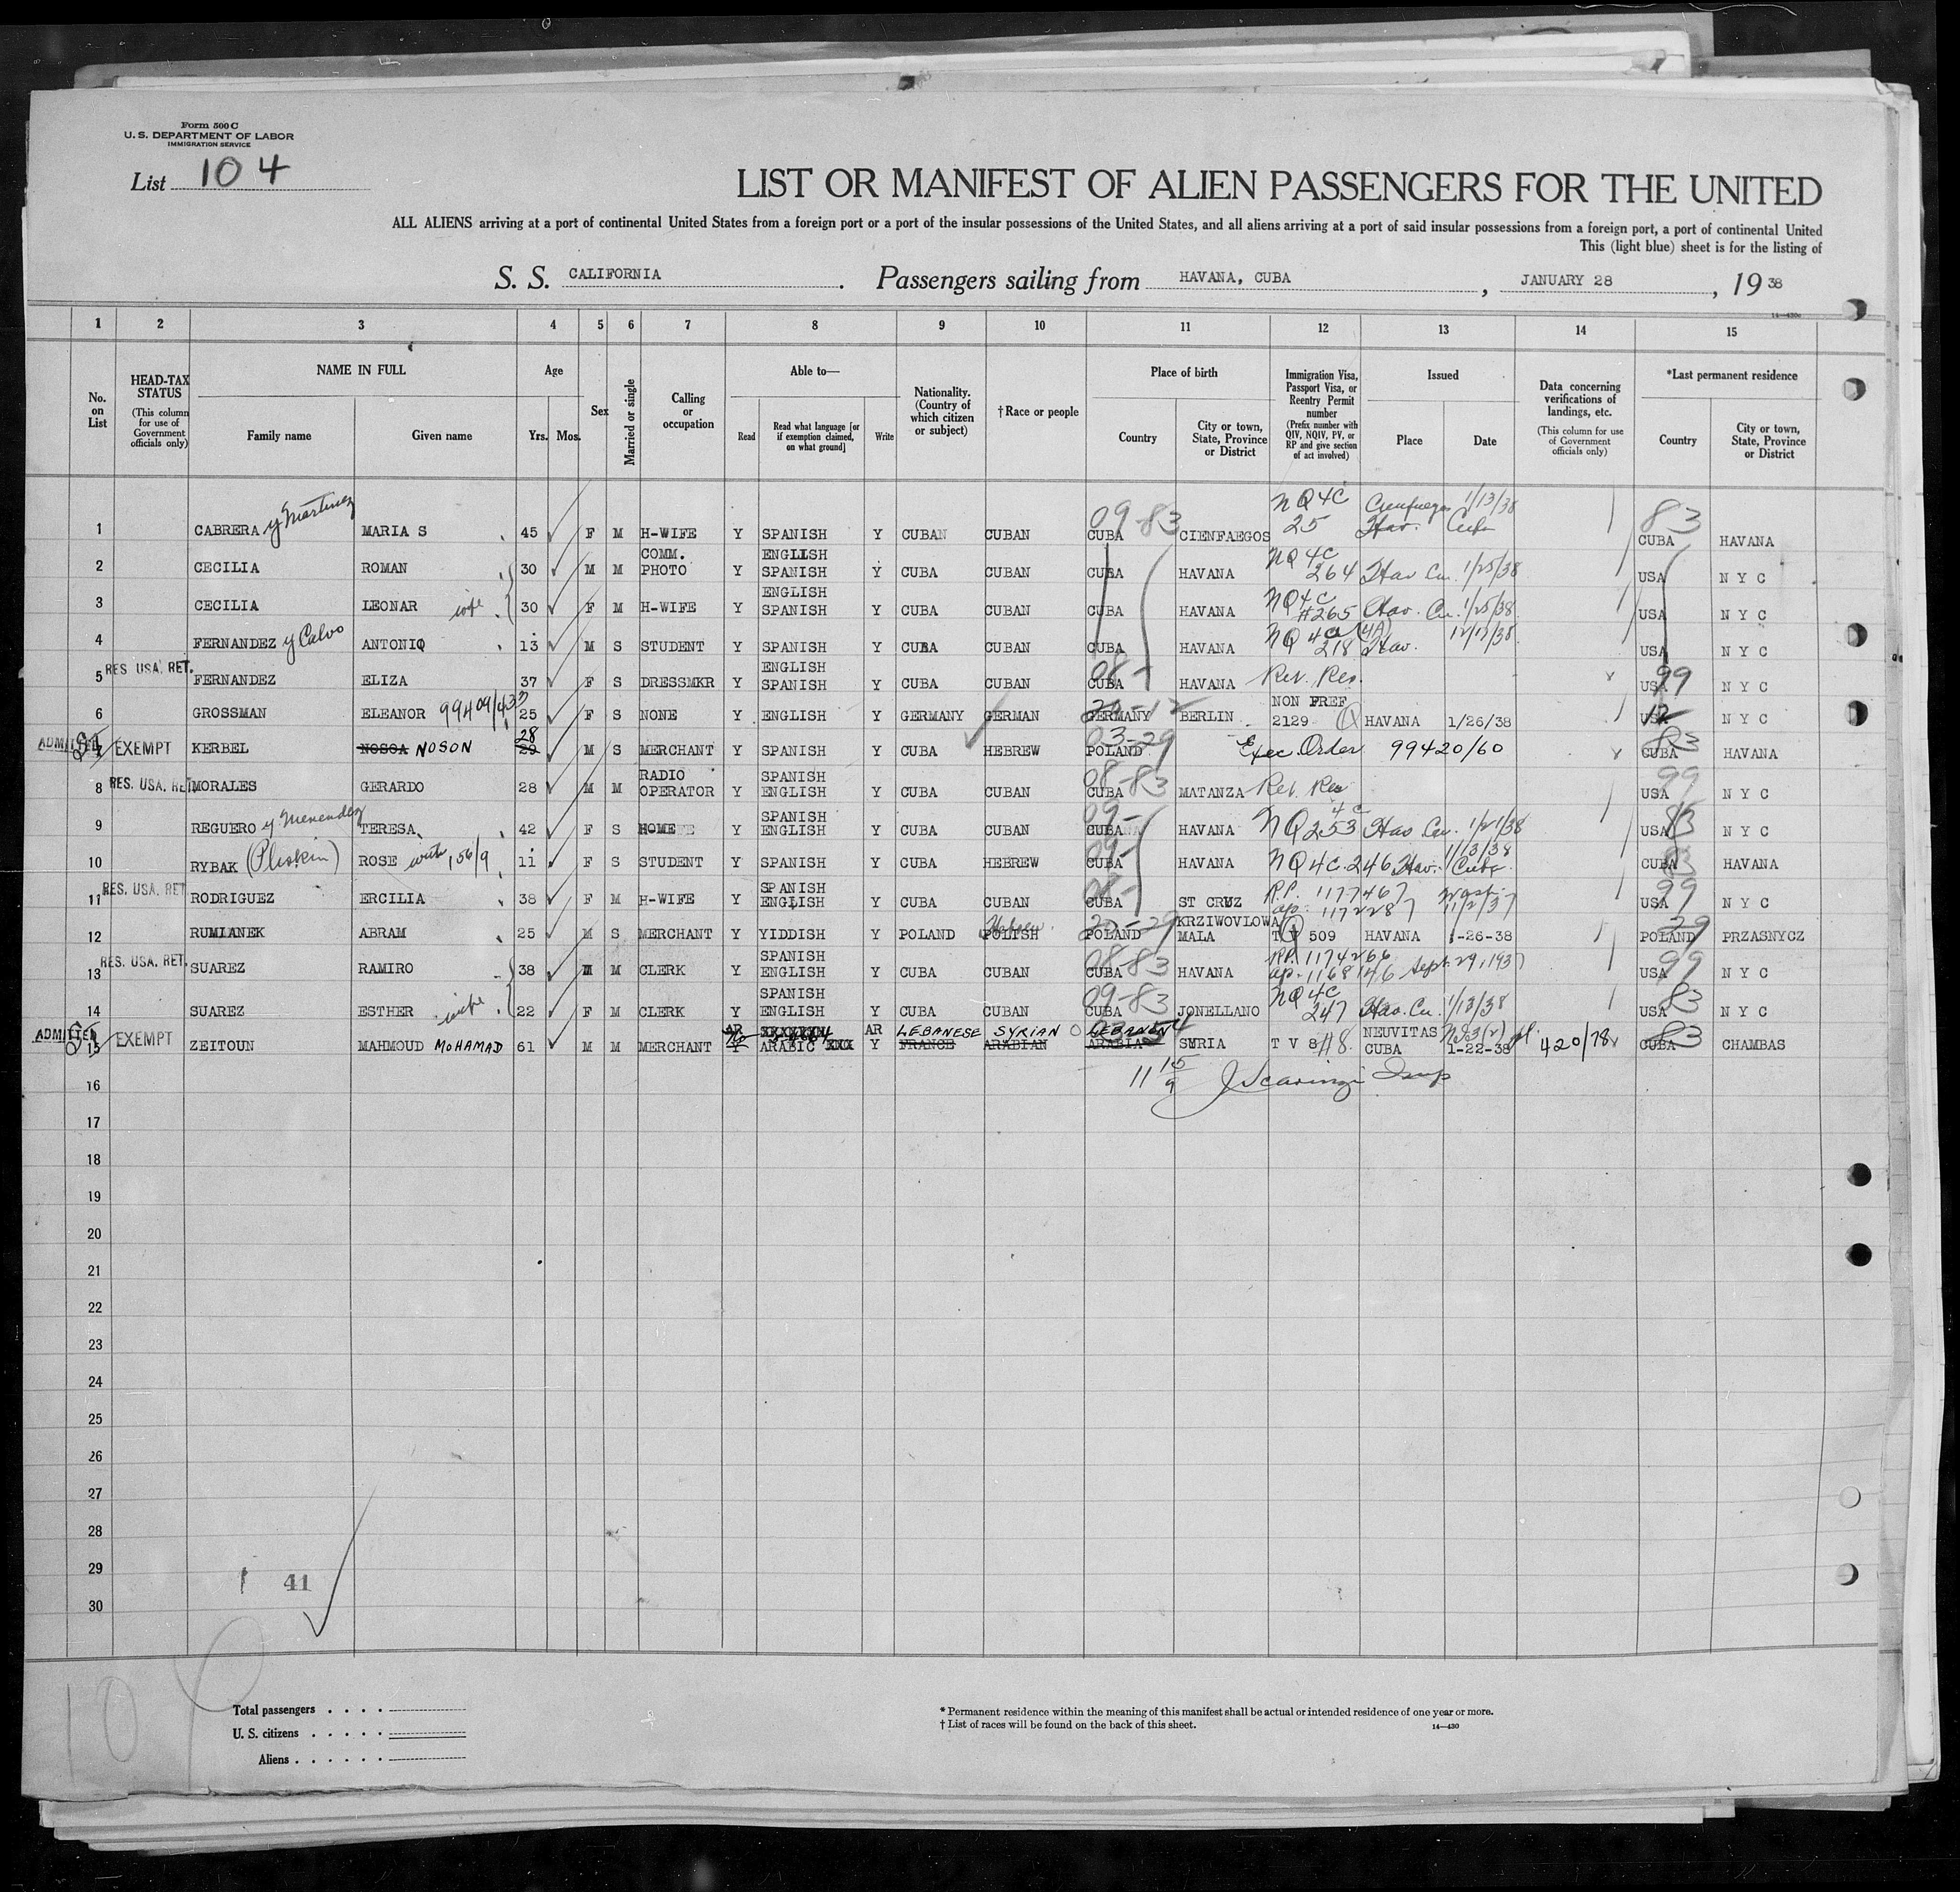 Form 500 C
U. S. DEPARTMENT OF LABOR
IMMIGRATION SERVICE
List 104
LIST OR MANIFEST OF ALIEN PASSENGERS FOR THE UNITED
ALL ALIENS arriving at a port of continental United States from a foreign port or a port of the insular possessions of the United States, and all aliens arriving at a port of said insular possessions from a foreign port, a port of continental United
This (light blue) sheet is for the listing of
S. S. CALIFORNIA. Passengers sailing from HAVANA, CUBA, JANUARY 28, 19 38
14—430c
1 2 3 4 5 6 7 8 9 10 11 12 13 14 15
No. on List
HEAD-TAX STATUS (This column for use of Government officials only)
NAME IN FULL
Family name Given name
Age
Yrs. Mos.
Sex
Married or single
Calling or occupation
Able to—
Read
Read what language [or if exemption claimed, on what ground]
Write
Nationality. (Country of which citizen or subject)
† Race or people
Place of birth
Country
City or town, State, Province or District
Immigration Visa, Passport Visa, or Reentry Permit number (Prefix number with QIV, NQIV, PV, or RP and give section of act involved)
Issued
Place Date
Data concerning verifications of landings, etc. (This column for use of Government officials only)
*Last permanent residence
Country
City or town, State, Province or District
1 CABRERA y Martinez MARIA S 45 F M H-WIFE Y SPANISH Y CUBAN CUBAN CUBA 09-83 CIENFAEGOS NQ 4C 25 Cienfuegos Hav. Cuba 1/13/38 83 CUBA HAVANA
2 CECILIA ROMAN 30 M M COMM. PHOTO Y ENGLISH SPANISH Y CUBA CUBAN CUBA HAVANA NQ 4C 264 Hav Cu. 1/25/38 USA N Y C
3 CECILIA LEONAR wife 30 F M H-WIFE Y ENGLISH SPANISH Y CUBA CUBAN CUBA HAVANA NQ 4C #265 Hav. Cu. 1/25/38 USA N Y C
4 FERNANDEZ y Calvo ANTONIO 13 M S STUDENT Y SPANISH Y CUBA CUBAN CUBA HAVANA NQ 4C (4A) 218 Hav. USA N Y C
5 RES. USA. RET. FERNANDEZ ELIZA 37 F S DRESSMKR Y ENGLISH SPANISH Y CUBA CUBAN CUBA 08- HAVANA Ret. Res. 99 USA N Y C
6 GROSSMAN ELEANOR 25 F S NONE Y ENGLISH Y GERMANY GERMAN GERMANY BERLIN NON PREF 2129 Q HAVANA 1/26/38 USA N Y C
7 ADMITTED EXEMPT KERBEL NOSOA NOSON 29 28 M S MERCHANT Y SPANISH Y CUBA HEBREW POLAND 03-29 Exec. Order 99420/60 CUBA 83 HAVANA
8 RES. USA. RET. MORALES GERARDO 28 M M RADIO OPERATOR Y SPANISH ENGLISH Y CUBA CUBAN CUBA 08-83 MATANZA Ret. Res 99 USA N Y C
9 REGUERO y Menendez TERESA 42 F S HOME Y SPANISH ENGLISH Y CUBA CUBAN CUBA 09- HAVANA NQ 253 4C Hav Cu. 1/21/38 USA 83 N Y C
10 RYBAK (Pliskin) ROSE with 156/9 11 F S STUDENT Y SPANISH Y CUBA HEBREW CUBA 09- HAVANA NQ 4C. 246 Hav. Cuba 1/13/38 CUBA 83 HAVANA
11 RES. USA. RET. RODRIGUEZ ERCILIA 38 F M H-WIFE Y SPANISH ENGLISH Y CUBA CUBAN CUBA 08- ST CRUZ R.P. 1177467 ap. 117228 Wash- 11/2/37 USA 99 N Y C
12 RUMIANEK ABRAM 25 M S MERCHANT Y YIDDISH Y POLAND POLISH Hebrew POLAND 20-29 KRZIWOVLOWA MALA T V 509 HAVANA 1-26-38 POLAND 29 PRZASNYCZ
13 RES. USA. RET. SUAREZ RAMIRO 38 M M CLERK Y SPANISH ENGLISH Y CUBA CUBAN CUBA 08-83 HAVANA R.P. 1174266 ap. 1168146 Sept. 29, 1937 USA 99 N Y C
14 SUAREZ ESTHER wife 22 F M CLERK Y SPANISH ENGLISH Y CUBA CUBAN CUBA 09-83 JONELLANO NQ 4C 247 Hav. Cu. 1/13/38 USA 83 N Y C
15 ADMITTED EXEMPT ZEITOUN MAHMOUD MOHAMAD 61 M M MERCHANT Y AR ARABIC XXX AR Y LEBANESE FRANCE SYRIAN ARABIAN LEBANON ARABIA SYRIA T V 8 #8 NEUVITAS CUBA 1-22-38 420/78 CUBA 83 CHAMBAS
16
11 15/9 J Scaringi Insp
17
18
19
20
21
22
23
24
25
26
27
28
29
30
41
10
Total passengers . . . .
U. S. citizens . . . . .
Aliens . . . . . .
* Permanent residence within the meaning of this manifest shall be actual or intended residence of one year or more.
† List of races will be found on the back of this sheet.
14—430